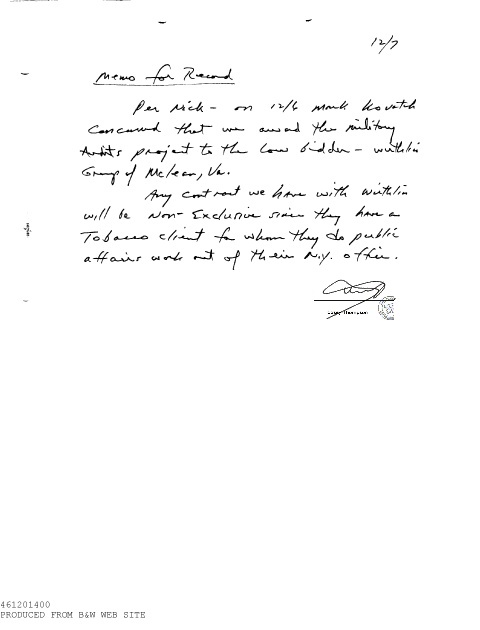 12/7
Memo for Record
Per Nick - on 12/6 Mark Kovatch
concurred that we award the military
Audits project to the low bidder - Wirthlin
Group of McLean, Va.
Any contract we have with Wirthlin
will be Non-Exclusive since they have a
Tobacco client for whom they do public
affairs work out of their N.Y. office.
461201400
PRODUCED FROM B&W WEB SITE